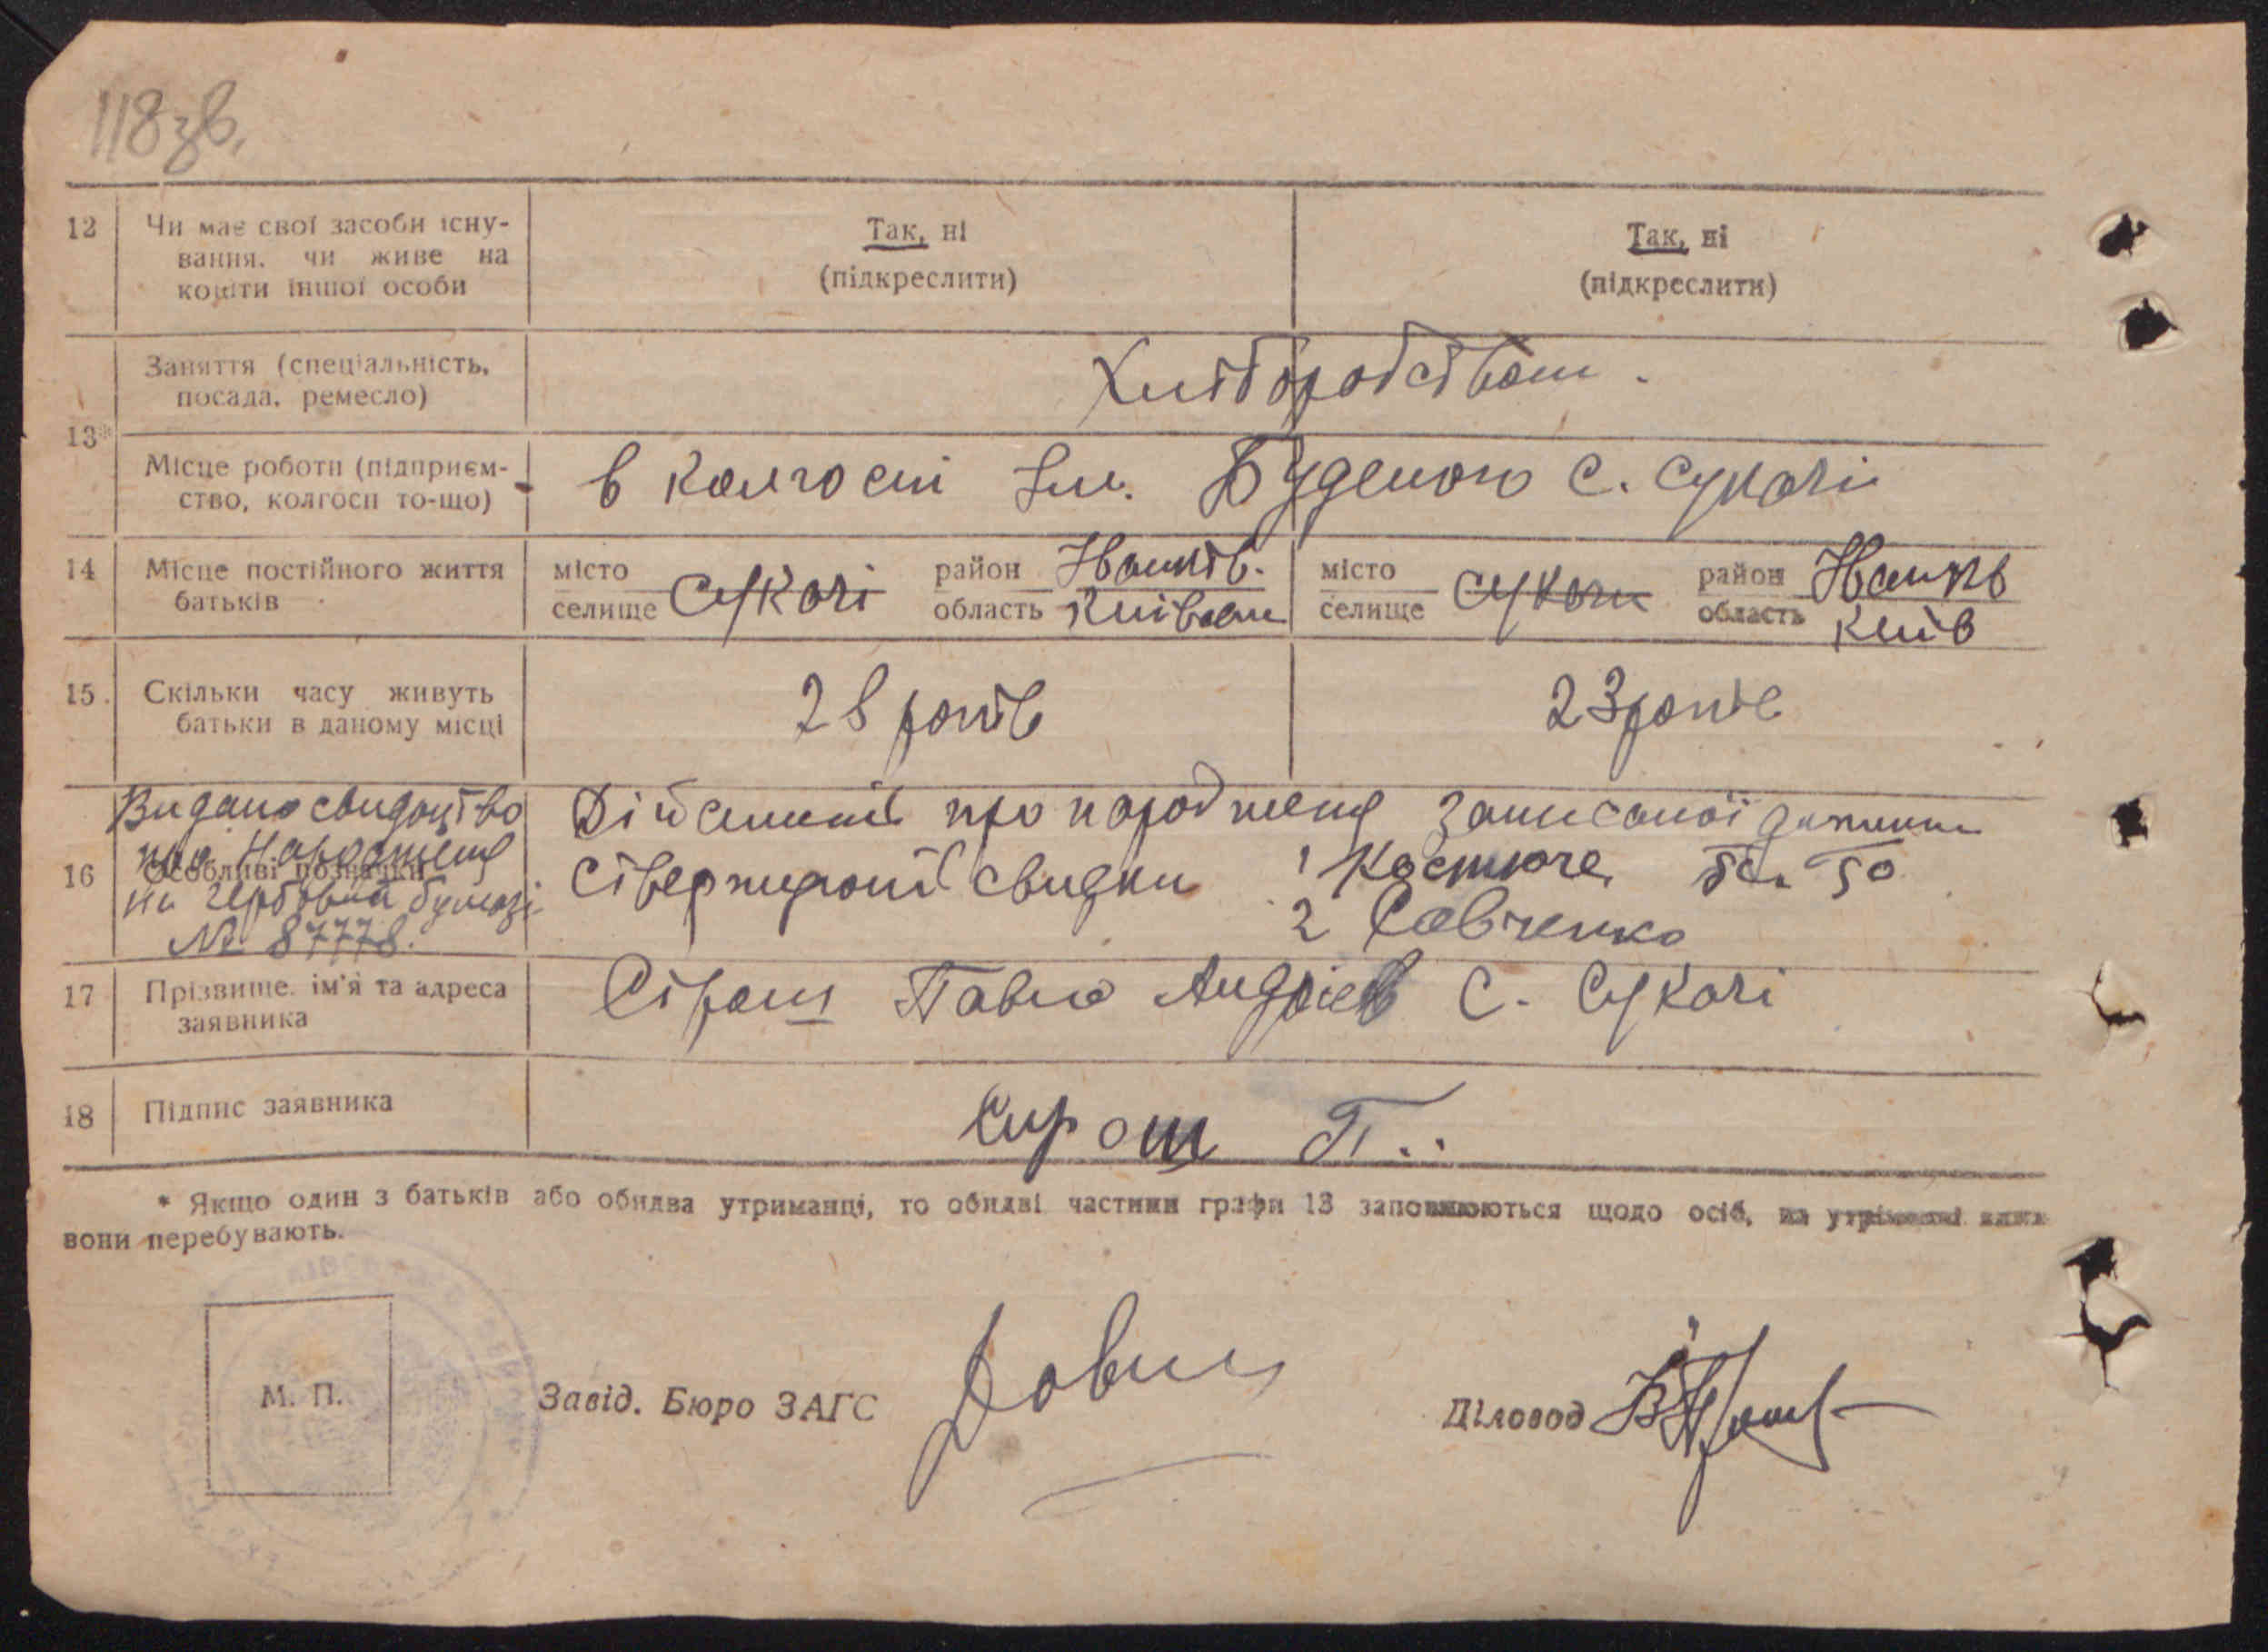 118 зв.
12 Чи має свої засоби існу- Так, ні Так, ні
вання, чи живе на (підкреслити) (підкреслити)
кошти іншої особи
Заняття (спеціальність, Хліборобством.
посада, ремесло)
13*
Місце роботи (підприєм- в колгоспі Ім. Буденого с. Сукачі
ство, колгосп то-що)
14 Місце постійного життя місто Сукачі район Іванків. місто Сукачи район Іванків
батьків селище область Київськ селище область Київ
15. Скільки часу живуть 28 років 23 років
батьки в даному місці
Видано свидоцтво Дійсність про народження записаної дитини
про Народження
16 Особливі позначки ствержують свидки 1 Костюче
на гербовій бумазі 2 Савченко
№ 87778.
17 Прізвище, ім'я та адреса Сірош Павло Андрієв с. Сукачі
заявника
18 Підпис заявника Сирош П..
* Якщо один з батьків або обидва утриманці, то обидві частини графи 13 заповнюються щодо осіб, на утриманні яких
вони перебувають.
М. П. Завід. Бюро ЗАГС Діловод